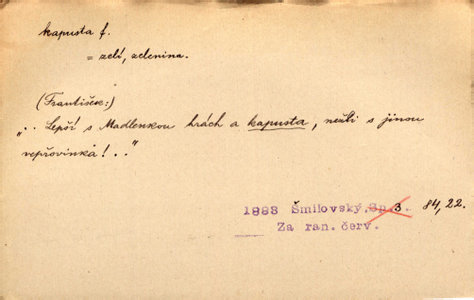 kapusta f.
= zelí, zelenina.
(František:)
„. . Lepší s Madlenkou hrách a kapusta, nežli s jinou
vepřovinka! . ."
1883 Šmilovský, Sp. 3. 84, 22.
Za ran. červ.